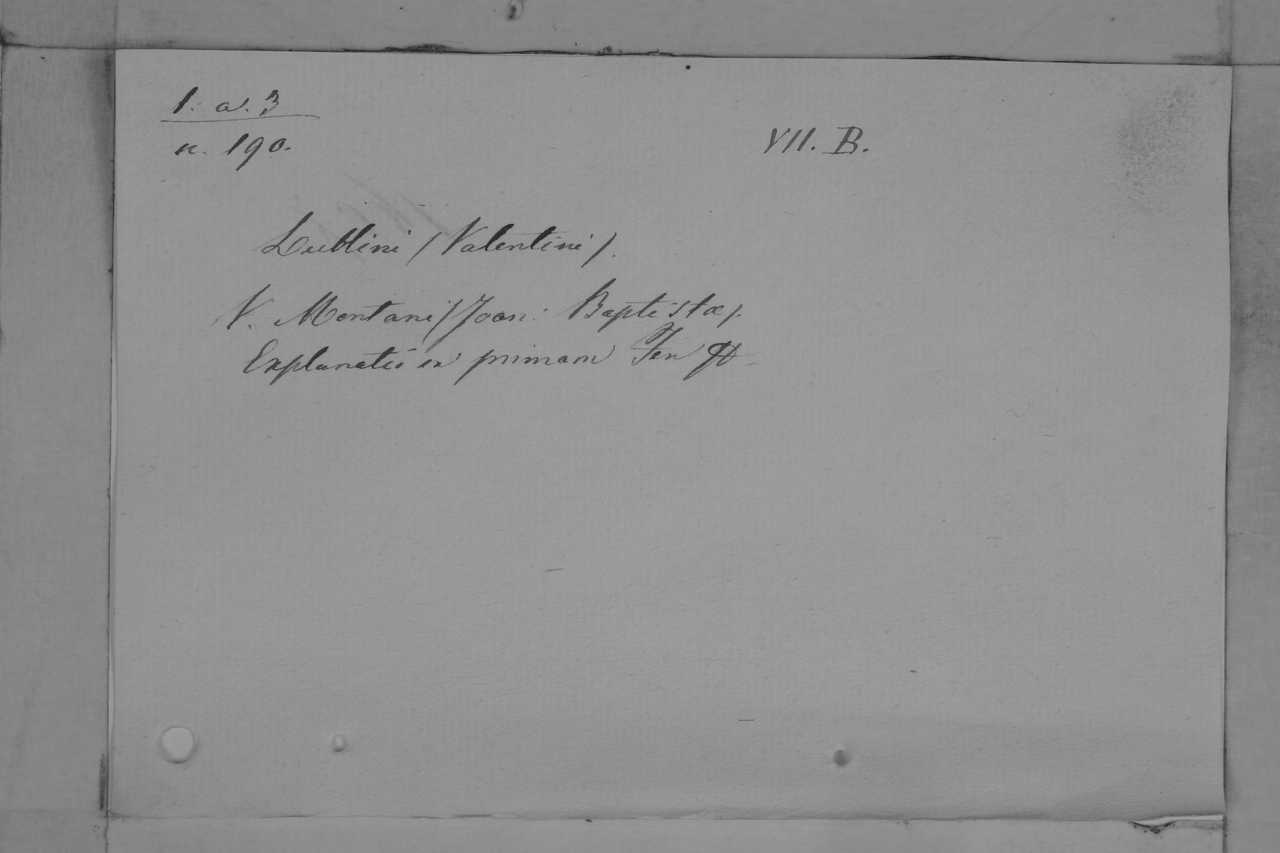 1. a. 3
n. 190.
VII. B.
Lublini (Valentini).
V. Montani (Joan: Baptistae).
Explanatio in primam Fen